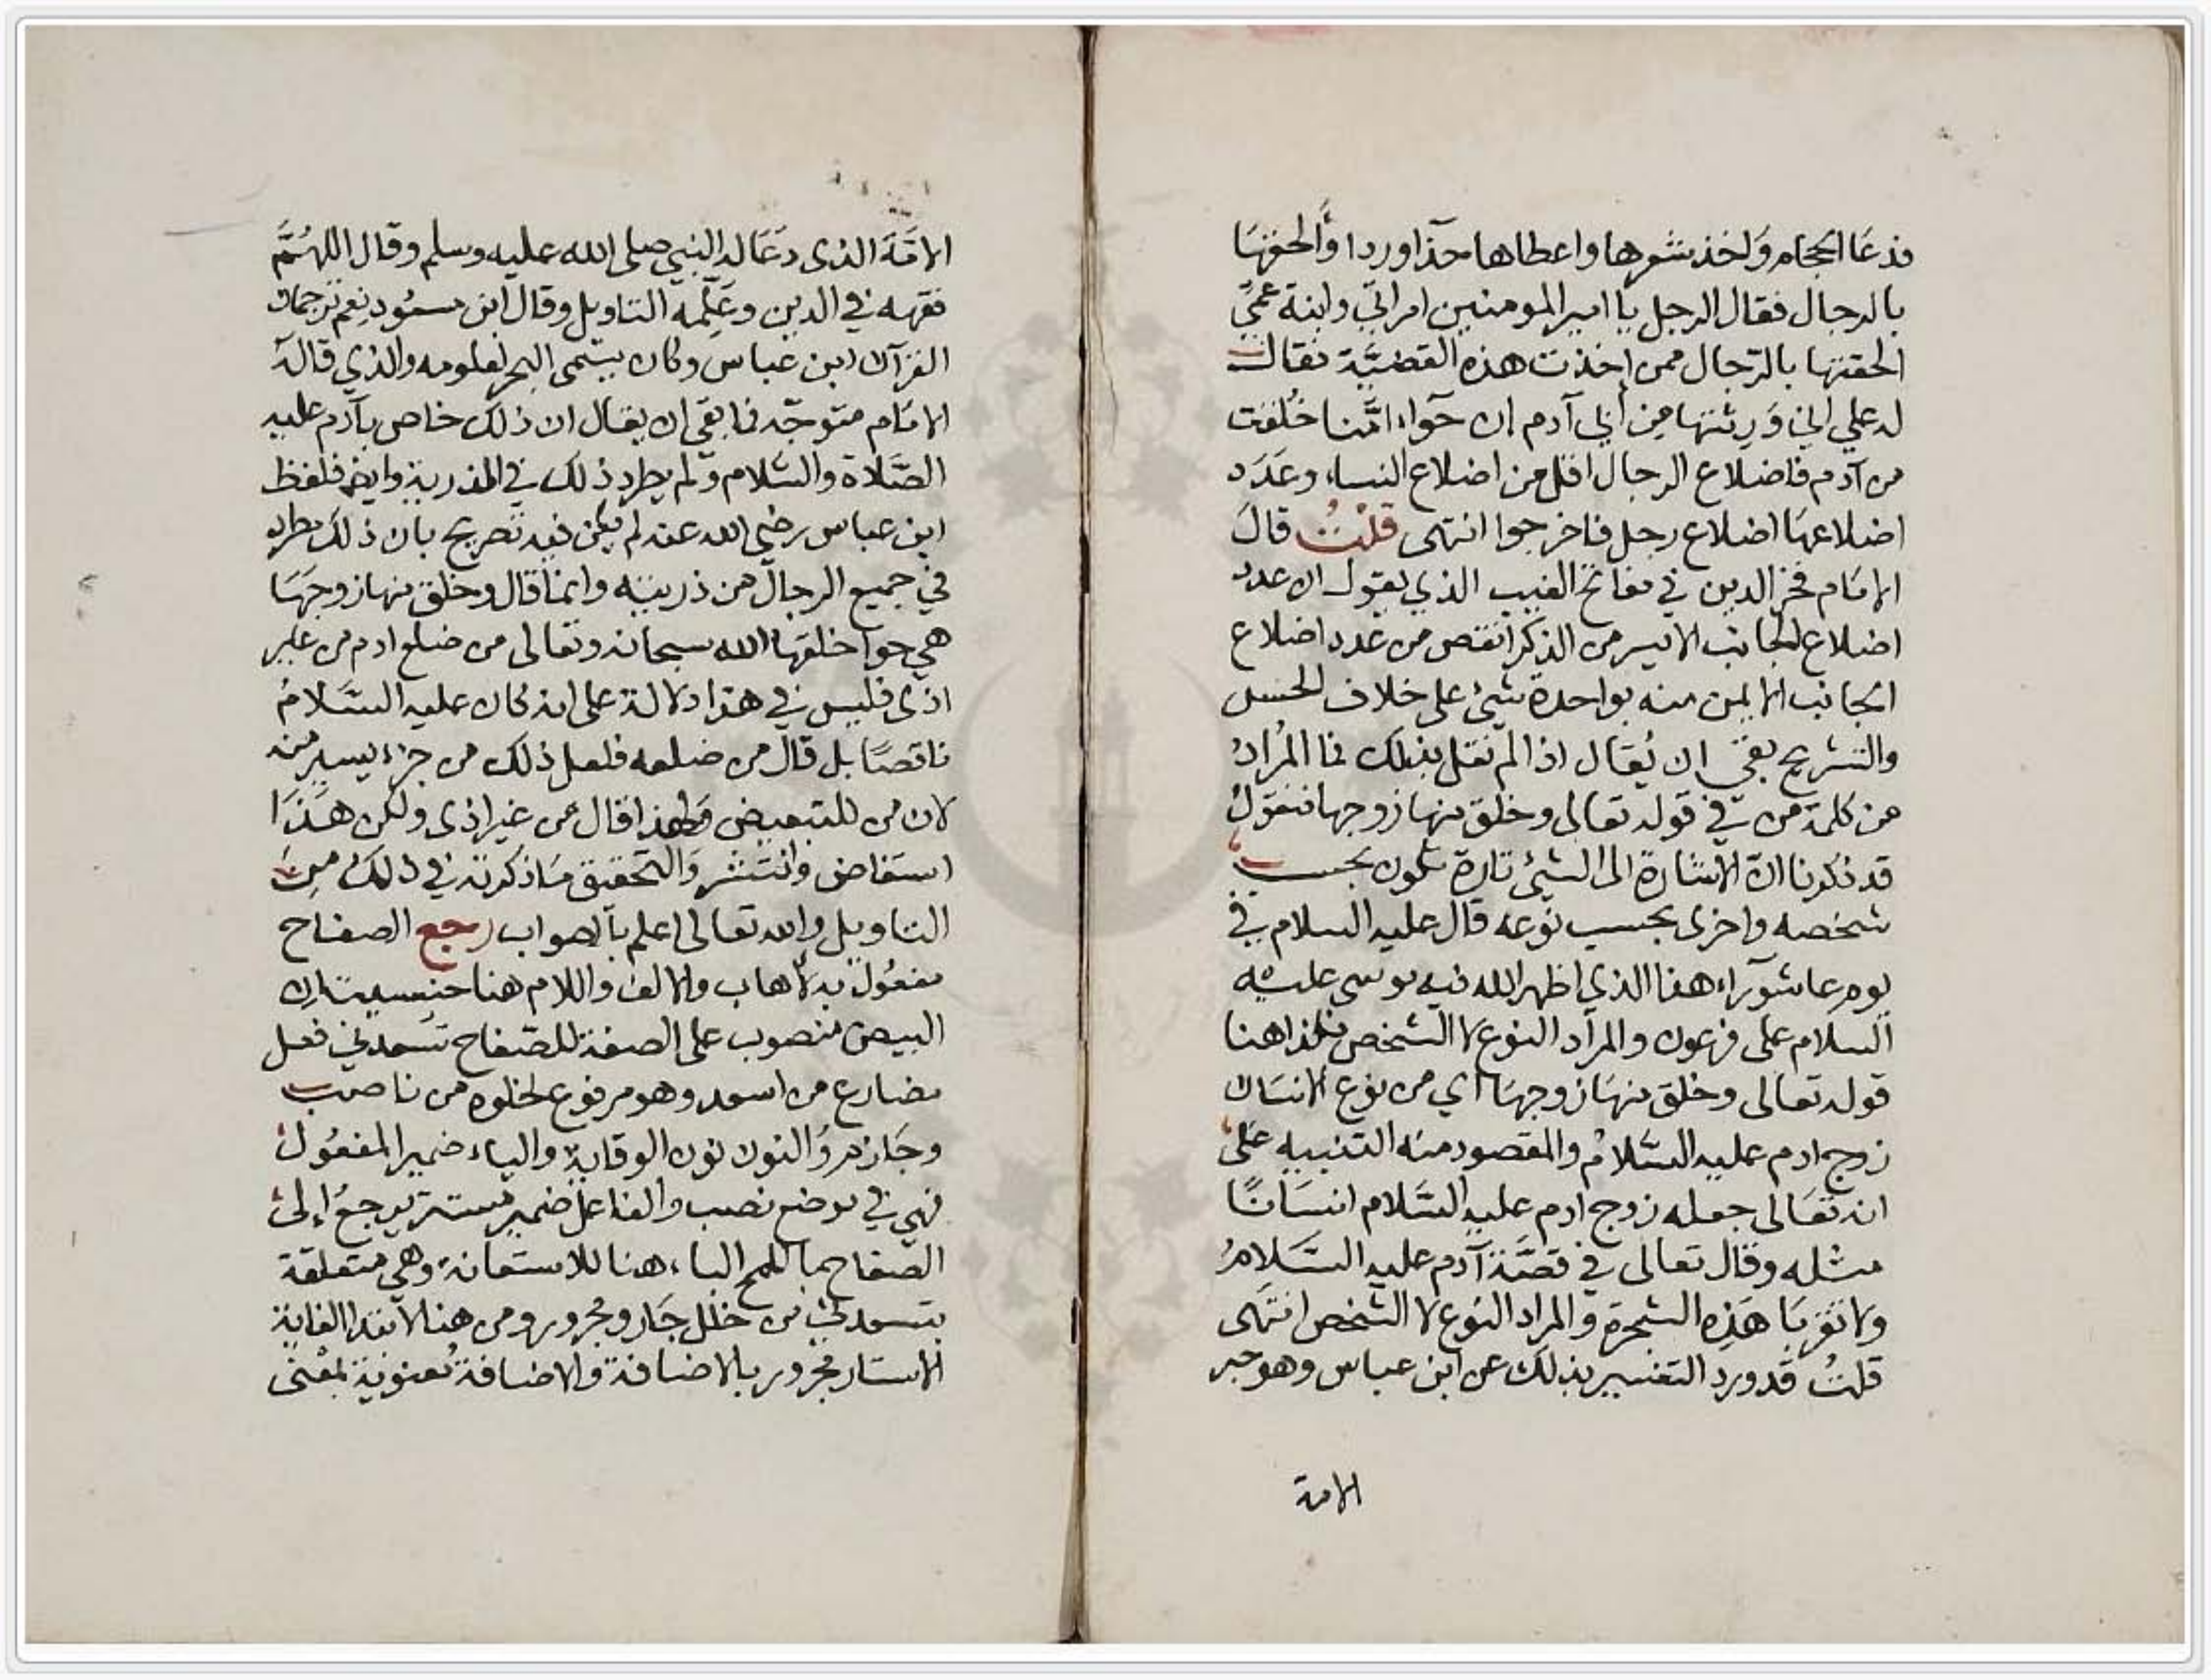 فدعا الحجام واخذ شعرها واعطاها حذا وردا والحقها
بالرجال فقال الرجل يا امير المومنين امراتي وابنة عمي
الحقتها بالرجال ممن اخذت هذه القضية فقال
له علي اني ورثتها من ابي آدم ان حواء امنا خلقت
من آدم فاضلاع الرجال اقل من اضلاع النساء وعدد
اضلاعها اضلاع رجل فاخرجوا انتهى قلت قال
الامام فخر الدين في مفاتح الغيب الذي يقول ان عدد
اضلاع الجانب الايسر من الذكر انقص من عدد اضلاع
الجانب الايمن منه بواحدة شيئ على خلاف الحس
والتشريح بقي ان يقال اذا لم نقل بذلك فما المراد
من كلمة من في قوله تعالى وخلق منها زوجها فنقول
قد ذكرنا ان الاشارة الى الشيئ تارة تكون بحسب
شخصه واخرى بحسب نوعه قال عليه السلام في
يوم عاشوراء هذا الذي اظهر الله فيه موسى عليه
السلام على فرعون والمراد النوع لا الشخص فكذا هنا
قوله تعالى وخلق منها زوجها اي من نوع الانسان
زوج ادم عليه السلام والمقصود منه التنبيه على
انه تعالى جعله زوج ادم عليه السلام انسانا
مثله وقال تعالى في قصة آدم عليه السلام
ولا تقربا هذه الشجرة والمراد النوع لا الشخص انتهى
قلت قد ورد التفسير بذلك عن ابن عباس وهو حبر
الامة
الامة الذى دعا له النبي صلى الله عليه وسلم وقال اللهم
فقهه في الدين وعلمه التاويل وقال ابن مسعود نعم ترجمان
القرآن ابن عباس وكان يسمى البحر لعلومه والذي قاله
الامام متوجه فما بقي ان يقال ان ذلك خاص بآدم عليه
الصلاة والسلام ولم يطرد ذلك في الذرية وايضا فلفظ
ابن عباس رضي الله عنه لم يكن فيه تصريح بان ذلك مطرد
في جميع الرجال من ذريته وانما قال وخلق منها زوجها
هي حوا خلقها الله سبحانه وتعالى من ضلع ادم من غير
اذى فليس في هذا دلالة على انه كان عليه السلام
ناقصا بل قال من ضلعه فلعل ذلك من جزء يسير منه
لان من للتبعيض ولهذا قال من غير اذى ولكن هذا
استفاض وانتشر والتحقيق ما ذكرته في ذلك من
التاويل والله تعالى اعلم بالصواب رجع الصفاح
مفعول به لاهاب والالف واللام هنا جنسيتان
البيض منصوب على الصفة للصفاح تسعدني فعل
مضارع من اسعد وهو مرفوع لخلوه من ناصب
وجازم والنون نون الوقاية والياء ضمير المفعول
فهي في موضع نصب والفاعل ضمير مستتر يرجع إلى
الصفاح بما للمح الباء هنا للاستعانة وهي متعلقة
بتسعدني من خلل جار ومجرور ومن هنا لابتدا الغاية
الاستار مجرور بالاضافة والاضافة معنوية بمعنى